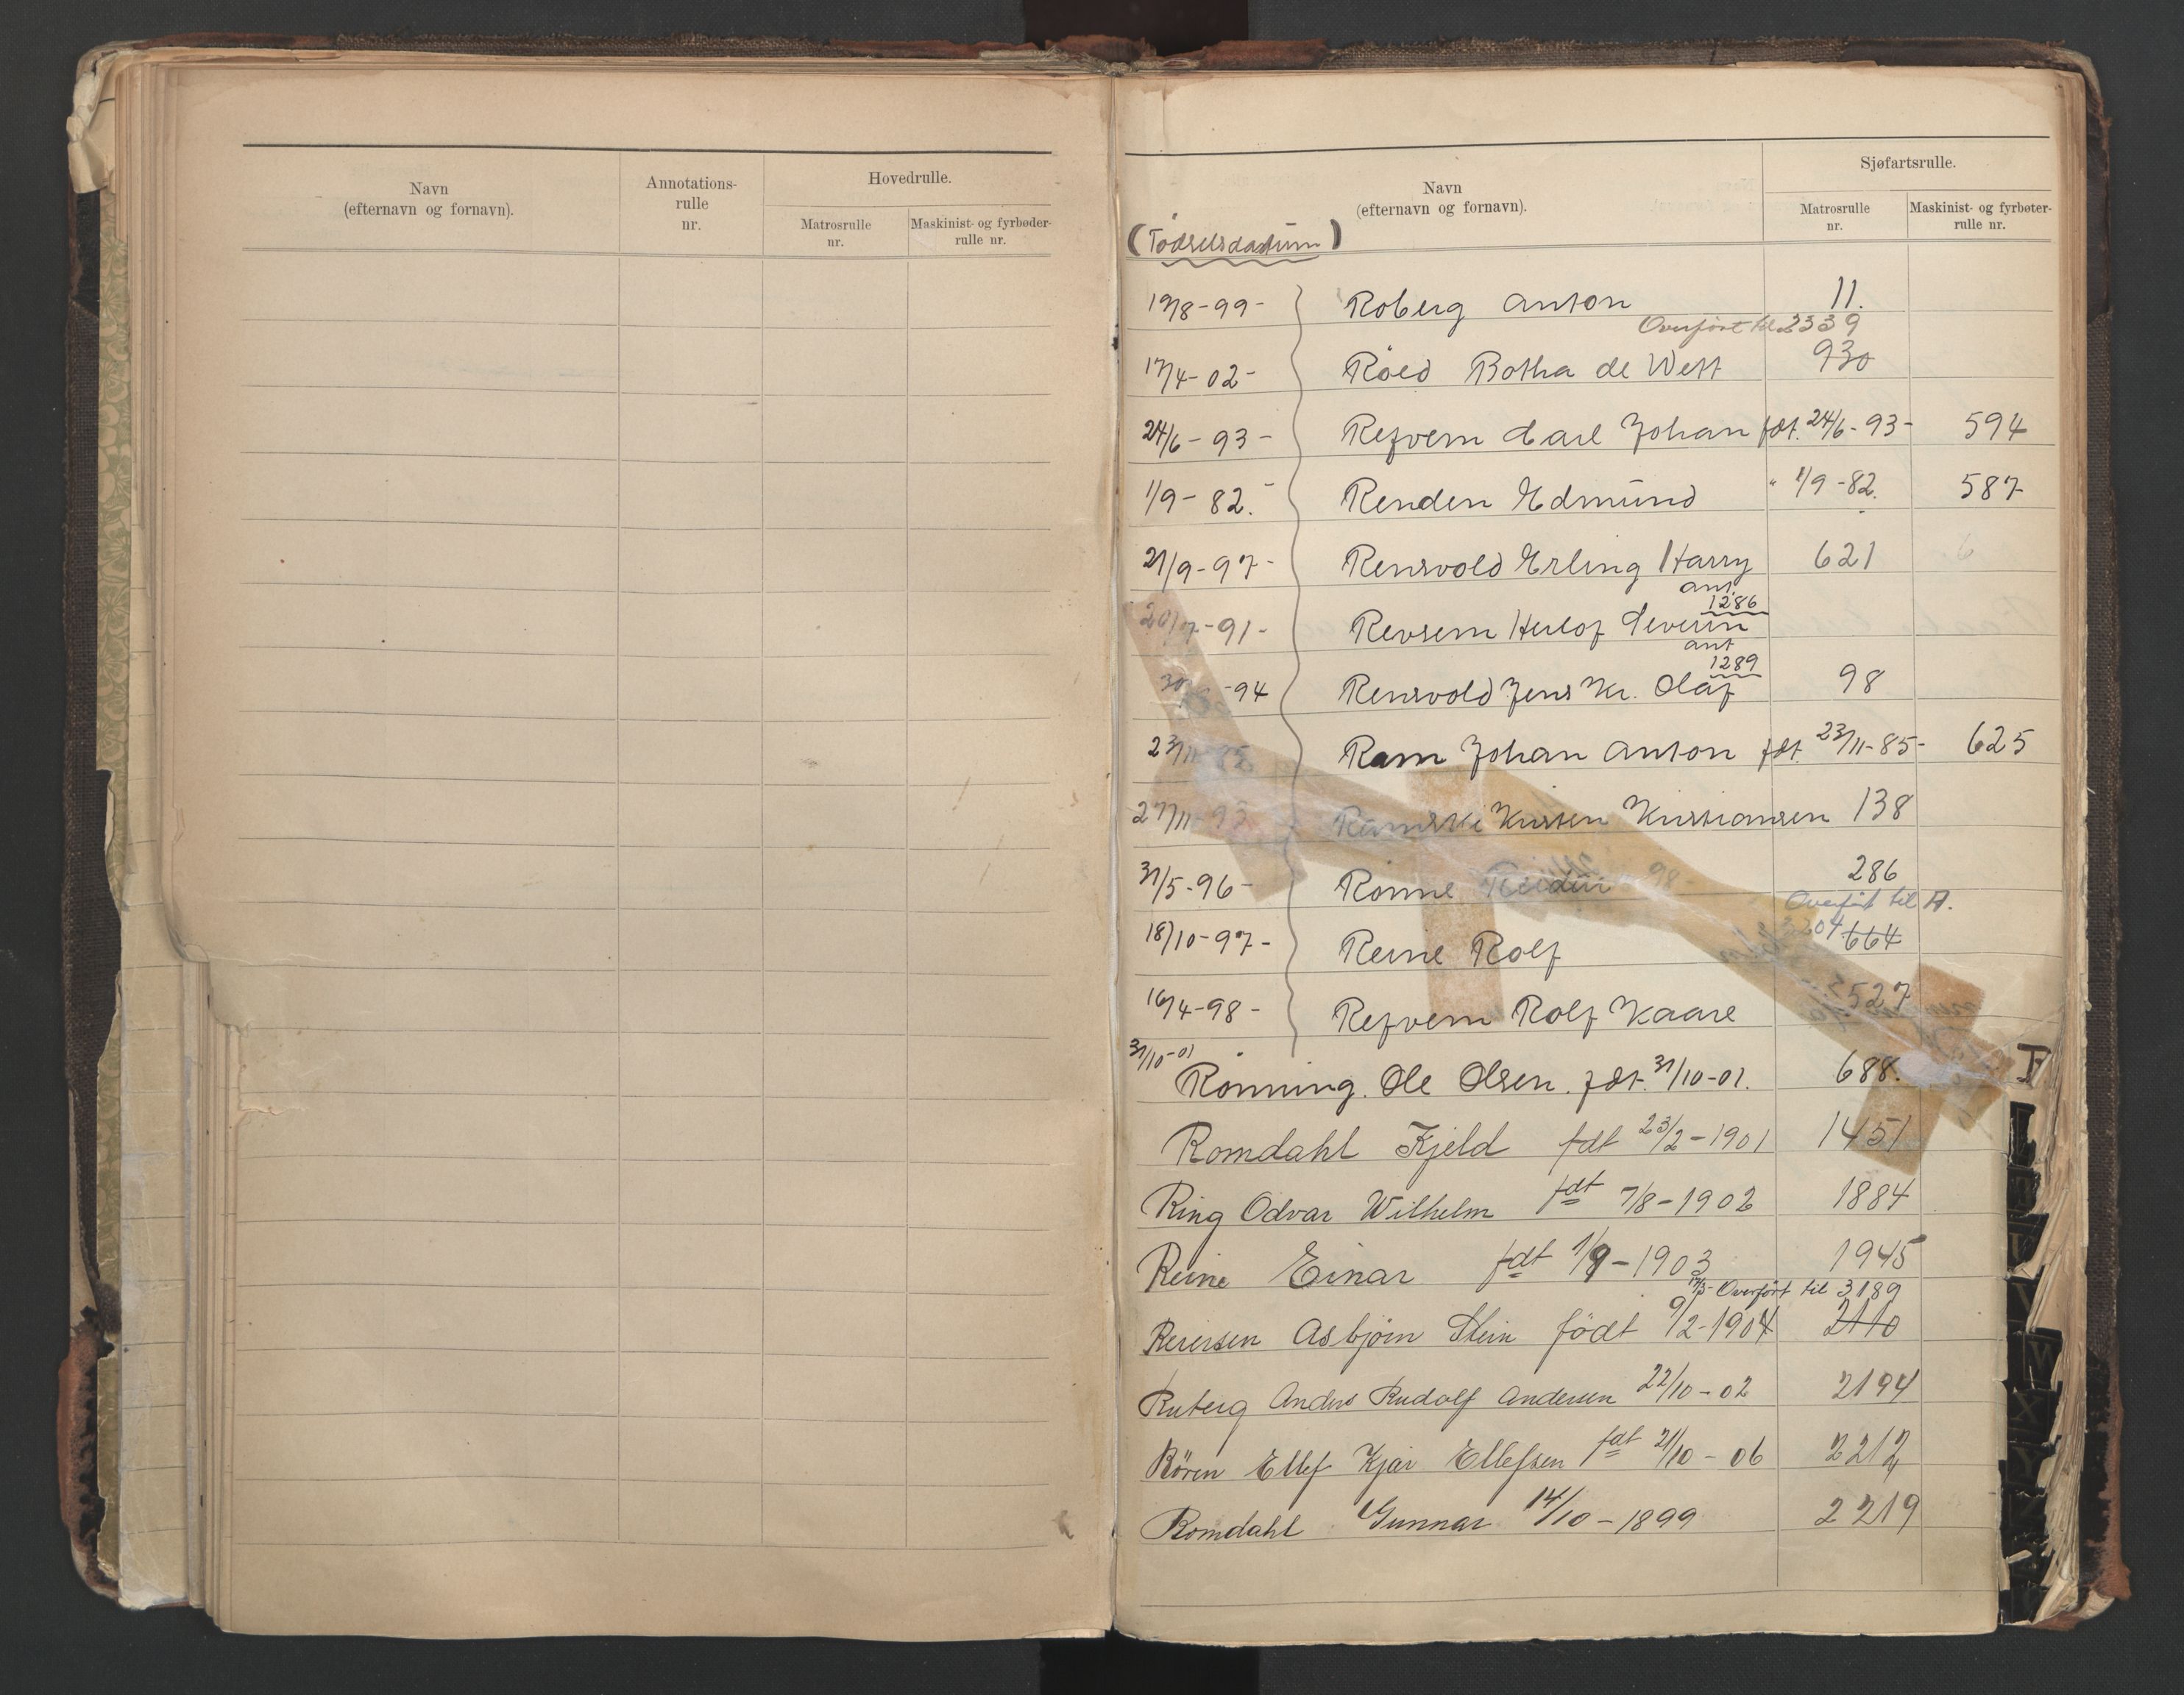 Navn
(efternavn og fornavn).
Annotations-
rulle
nr.
Hovedrulle.
Matrosrulle
nr.
Maskinist- og fyrbøder-
rulle nr.
Navn
(efternavn og fornavn).
Sjøfartsrulle.
Matrosrulle
nr.
Maskinist- og fyrbøter-
rulle nr.
(Födselsdatum)
19/8-99- Roberg Anton 11.
Overført til 2339
17/4-02- Röed Botha de Wett 930
24/6-93- Refvem Carl Johan fdt. 24/6-93- 594
1/9-82.- Renden Edmund " 1/9-82. 587
21/9-97- Rensvold Erling Harry 621
ant.
1286
20/7-91- Revsem Herlof Severin
ant
1289
30/ -94 Rensvold Jens Kr. Olaf 98
23/11-85 Ram Johan Anton fdt. 23/11-85- 625
27/11-93 Kristen Kristiansen 138
31/5-96- Rönne Reidar 286
Overført til A.
2204
18/10-97- Reine Rolf 664
16/4-98- Refvem Rolf Kaare 527
31/10-01 Rönning. Ole Olsen. fdt. 31/10-01. 688.
Romdahl Kjeld fdt 23/2-1901 1451
Ring Odvar Wilhelm fdt 7/8-1902 1884
Reine Einar fdt 1/9-1903 1945
17/3- Overført til 3189
Reiersen Asbjörn Stein födt 9/2-1904 2110
Ruberg Anders Rudolf Andersen 22/10-02 2194
Rören Ellef Kjær Ellefsen fdt 21/10-06 2212
Romdahl Gunnar 14/10-1899 2219